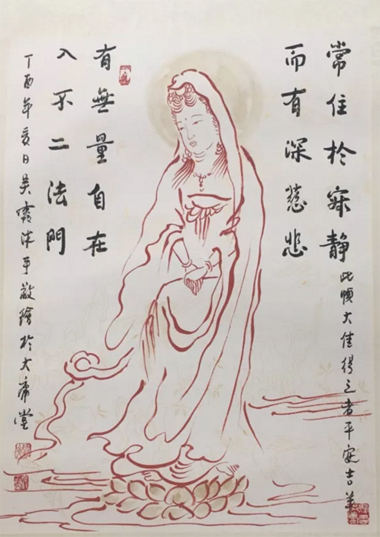 常住於寂靜
而有深慈悲
此幀大佳得之者平安吉羊
有無量自在
入不二法門
丁酉年
日吳
平敬繪於大
堂